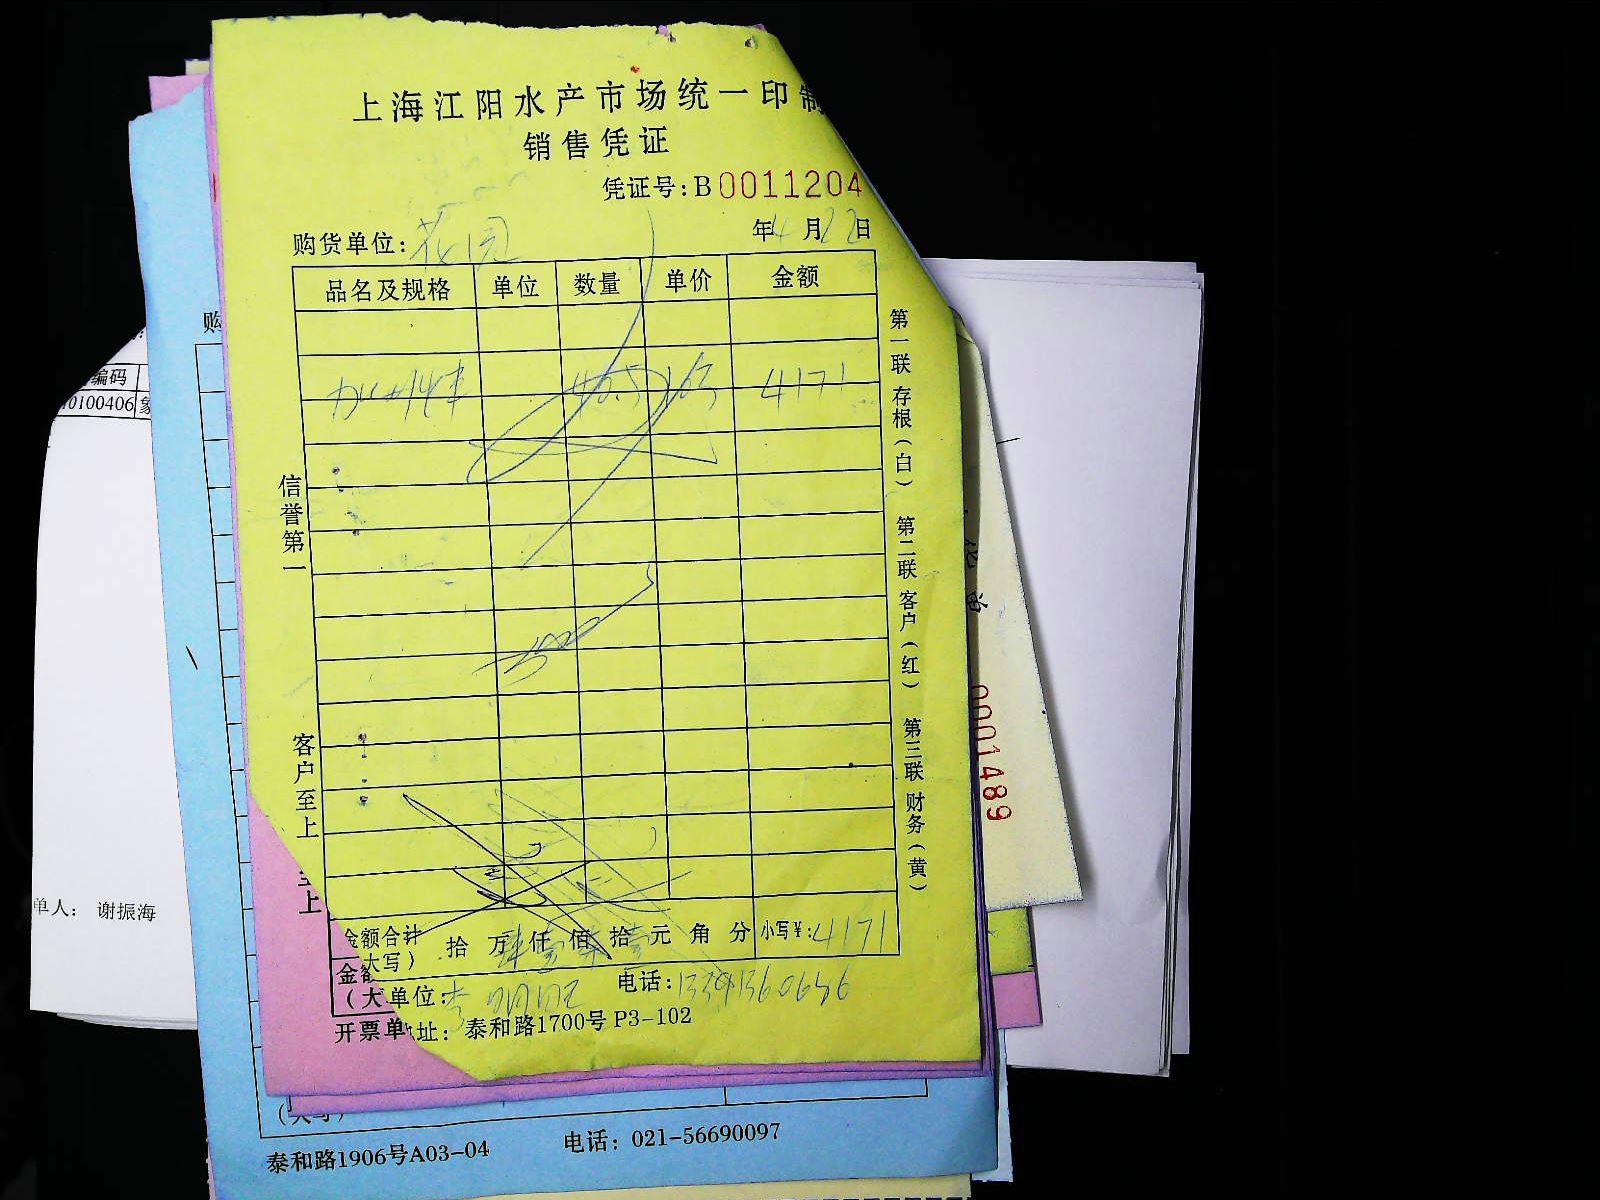 上海江阳水产市场统一印制
销售凭证
凭证号:B0011204
购货单位:花园 年4月22日
品名及规格 单位 数量 单价 金额
4171
信誉第一
客户至上
第一联 存根(白)
第二联 客户(红)
第三联 财务(黄)
金额合计 拾万肆仟壹佰柒拾壹元角分 小写¥:4171
大写)
单位: 电话:
址: 泰和路1700号 P3-102
至上
金额
(大
开票单
购
编码
10100406
单人: 谢振海
0001489
泰和路1906号A03-04 电话: 021-56690097